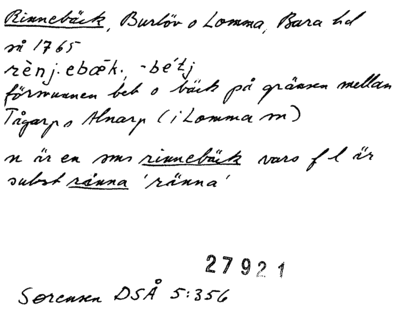 Rinnebäck, Burlöv o Lomma, Bara hd
nå 1765
rènj.ebæ̀k., -bétj
försvunnen beb o bäck på gränsen mellan
Tågarp o Alnarp (i Lomma sn)
n är en sms rinnebäck vars f l är
subst rånna 'ränna'
27921
Sørensen DSÅ 5:356